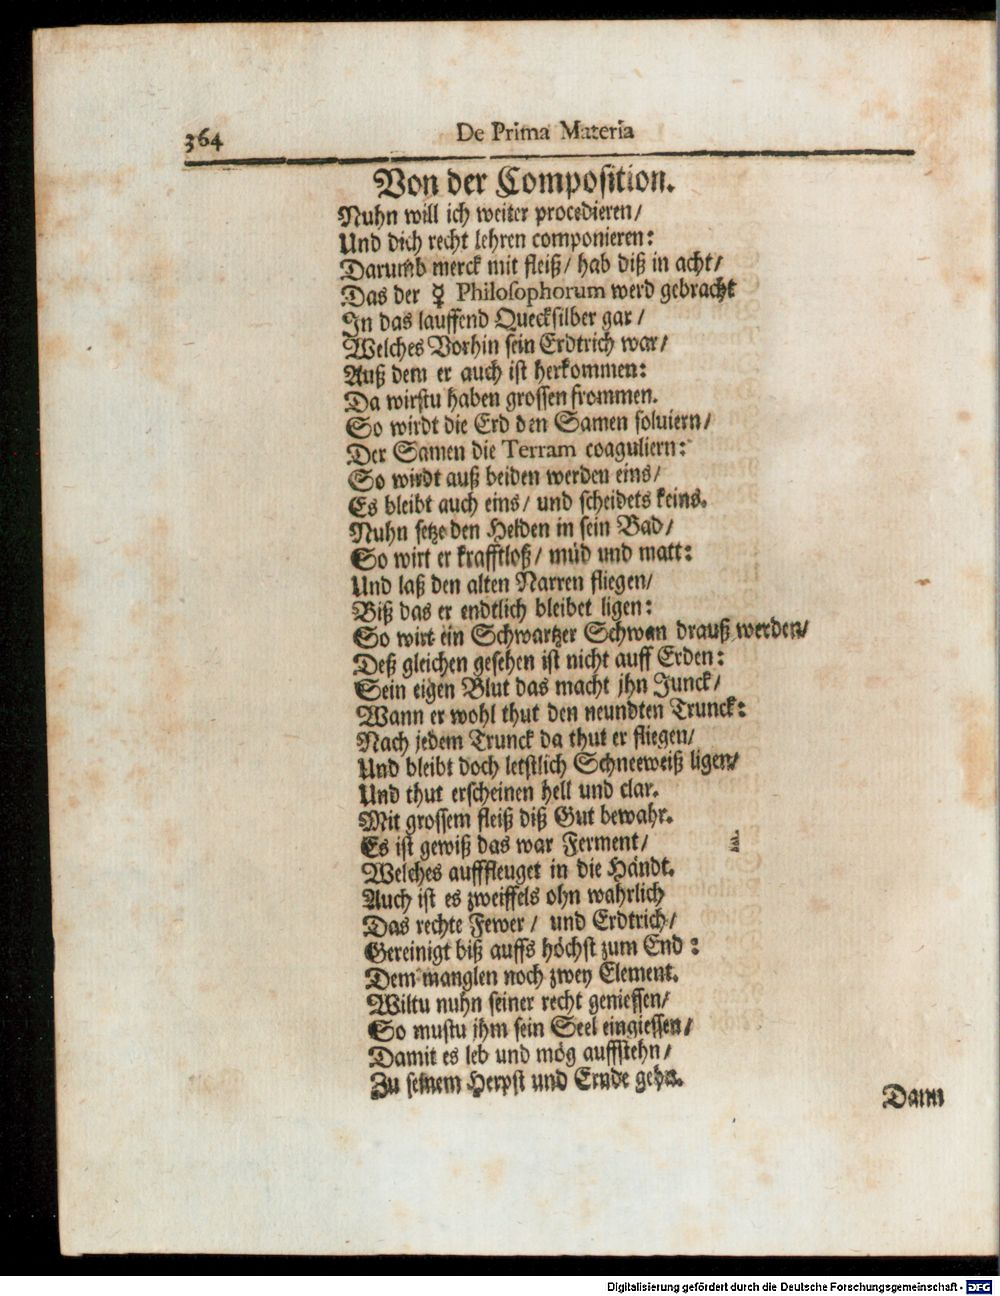 364
De Prima Materia
Von der Composition.
Nuhn will ich weiter procedieren/
Und dich recht lehren componieren:
Darumb merck mit fleiß/ hab diß in acht/
Das der ☿ Philosophorum werd gebracht
In das lauffend Quecksilber gar/
Welches Vorhin sein Erdtrich war/
Auß dem er auch ist herkommen:
Da wirstu haben grossen frommen.
So wirdt die Erd den Samen soluiern/
Der Samen die Terram coaguliern:
So wirdt auß beiden werden eins/
Es bleibt auch eins/ und scheidets keins.
Nuhn setze den Helden in sein Bad/
So wirt er krafftloß/ müd und matt:
Und laß den alten Narren fliegen/
Biß das er endtlich bleibet ligen:
So wirt ein Schwartzer Schwan drauß werden/
Deß gleichen gesehen ist nicht auff Erden:
Sein eigen Blut das macht jhn Junck/
Wann er wohl thut den neundten Trunck:
Nach jedem Trunck da thut er fliegen/
Und bleibt doch letstlich Schneeweiß ligen/
Und thut erscheinen hell und clar.
Mit grossem fleiß diß Gut bewahr.
Es ist gewiß das war Ferment/
Welches aufffleuget in die Händt.
Auch ist es zweiffels ohn wahrlich
Das rechte Fewer/ und Erdtrich/
Gereinigt biß auffs höchst zum End:
Dem manglen noch zwey Element.
Wiltu nuhn seiner recht geniessen/
So mustu jhm sein Seel eingiessen/
Damit es leb und mög auffstehn/
Zu seinem Herpst und Ernde gehn.
Dann
Digitalisierung gefördert durch die Deutsche Forschungsgemeinschaft - DFG